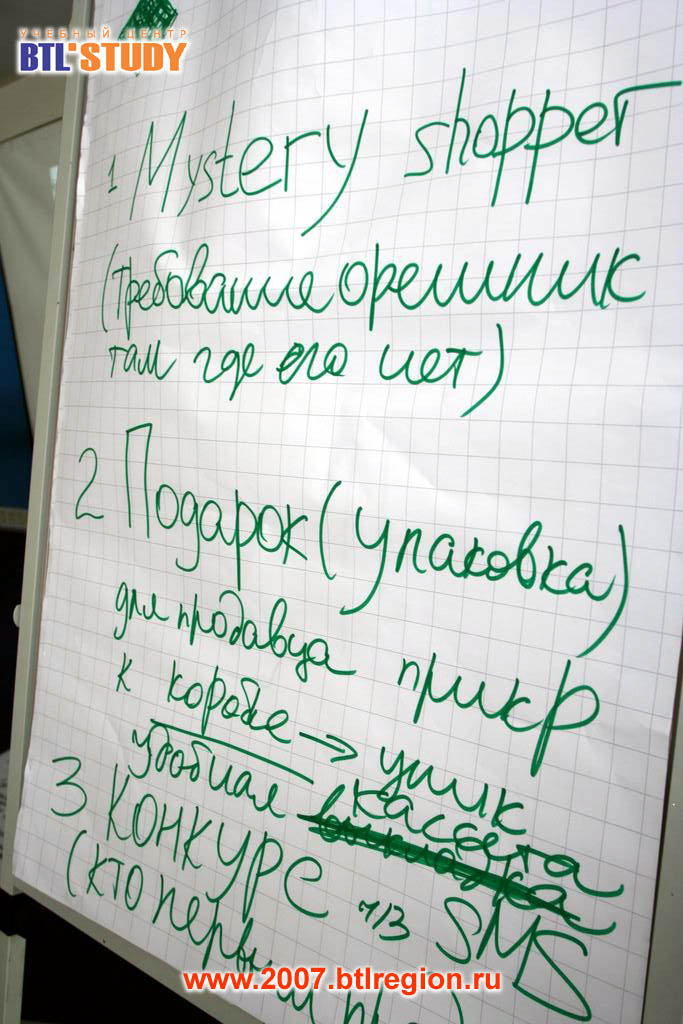 УЧЕБНЫЙ ЦЕНТР
BTL STUDY
1 Mystery shopper
(требование орешник
там где его нет)
2 Подарок (упаковка)
для продавца прикр
к коробке → уник
удобная кассета
3 Конкурс ч/з SMS
(кто первым
www.2007.btlregion.ru